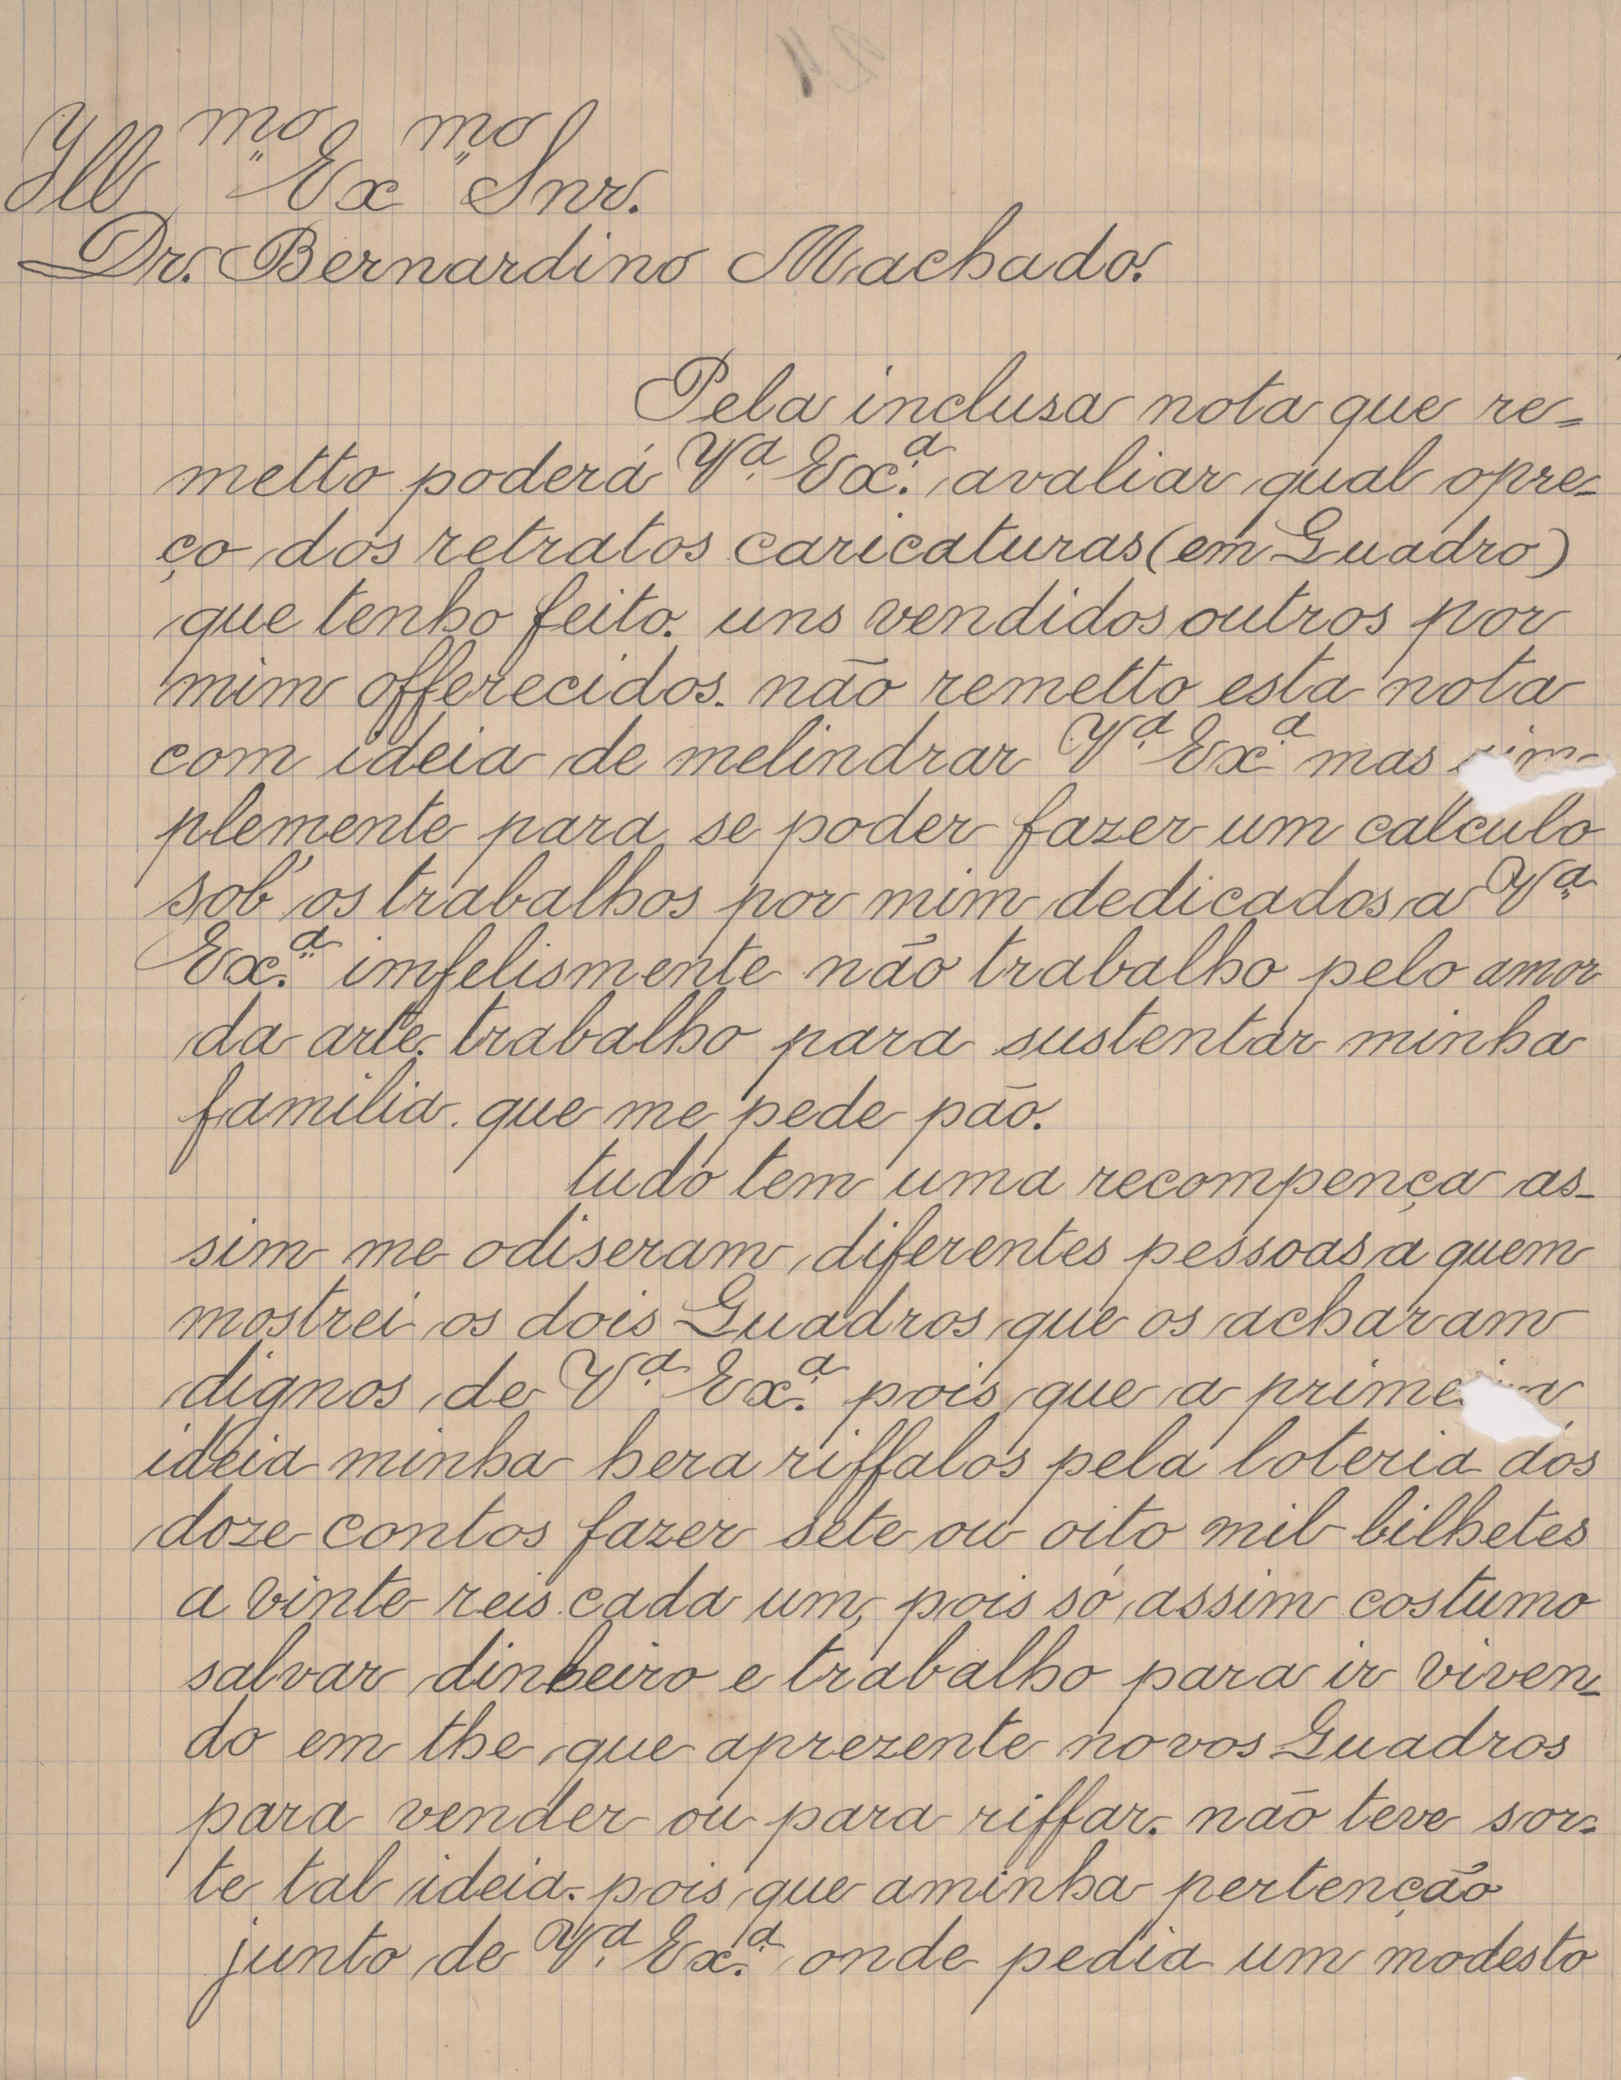 Illmo Exmo Snr.
Dr. Bernardino Machado.
Pela inclusa nota que re=
metto poderá Va. Exa. avaliar qual opre=
ço dos retratos caricaturas (em Quadro)
que tenho feito. uns vendidos outros por
mim offerecidos. não remetto esta nota
com ideia de melindrar Va. Exa. mas sim=
plemente para se poder fazer um calculo
sob' os trabalhos por mim dedicados a Va.
Exa. imfelismente não trabalho pelo amor
da arte. trabalho para sustentar minha
familia. que me pede pão.
tudo tem uma recompença as-
sim me odiseram diferentes pessoas a quem
mostrei os dois Quadros que os acharam
dignos de Va. Exa. pois que a primeira
ideia minha hera riffalos pela loteria dos
doze contos fazer sete ou oito mil bilhetes
a vinte reis cada um, pois só assim costumo
salvar dinheiro e trabalho para ir viven=
do em the que aprezente novos Quadros
para vender ou para riffar. não teve sor=
te tal ideia. pois que aminha pertenção
junto de Va. Exa. onde pedia um modesto